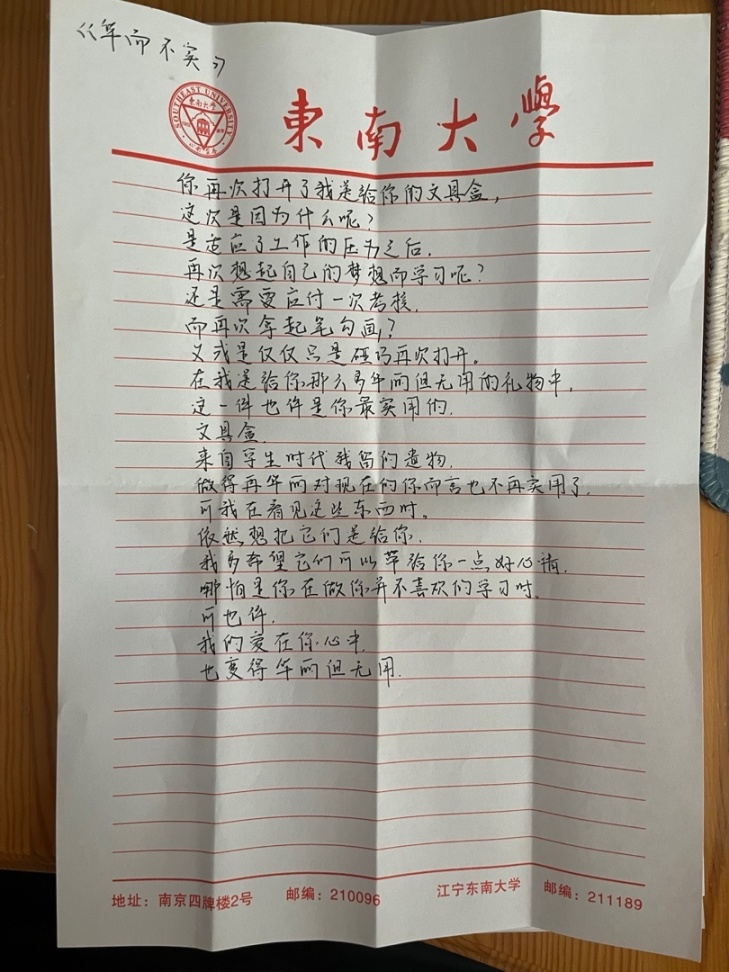 《华而不实》
SOUTHEAST UNIVERSITY
東南大學
東南大學
你再次打开了我送给你的文具盒,
这次是因为什么呢?
是适应了工作的压力之后.
再次想起自己的梦想而学习呢?
还是需要应付一次考核.
而再次拿起笔勾画?
又或是仅仅只是碰巧再次打开。
在我送给你那么多华而但无用的礼物中.
这一件也许是你最实用的.
文具盒.
来自学生时代残留的遗物.
做得再华而对现在的你而言也不再实用了.
可我在看见这些东西时。
依然想把它们送给你.
我多希望它们可以带给你一点好心情.
哪怕是你在做你并不喜欢的学习时.
可也许.
我的爱在你心中.
也变得华而但无用.
地址：南京四牌楼2号 邮编：210096 江宁东南大学 邮编：211189